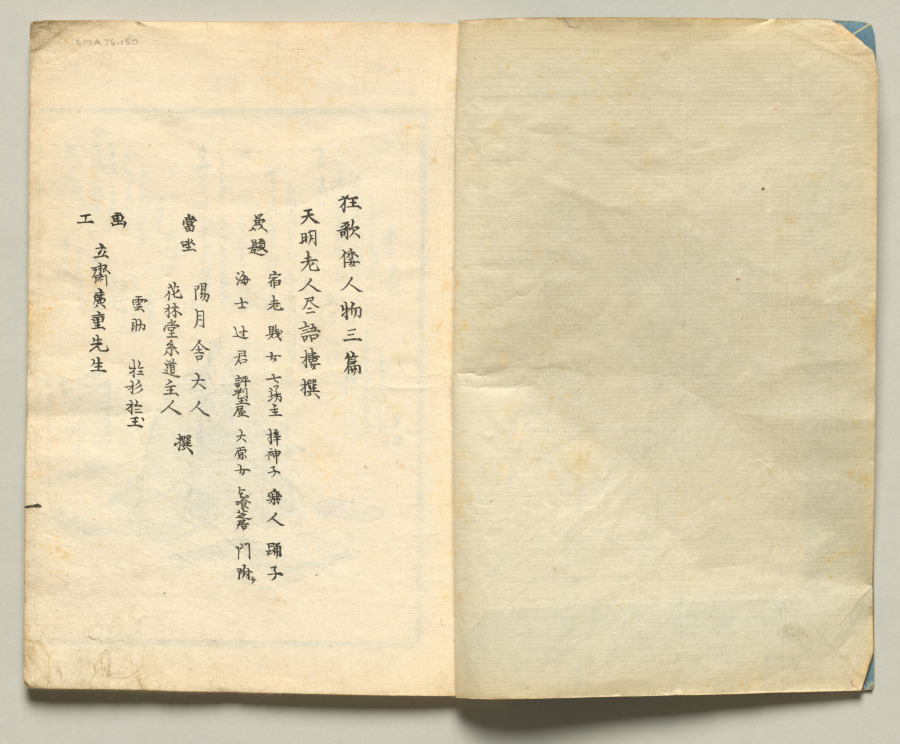 狂歌倭人物三篇
天明老人尽語樓撰
兼題
宿老 賎女 主 神子 樂人 踊子
海士 辻君 評判玉屋 大原女 門附
當坐
陽月舎大人
花林堂糸道主人
撰
雲助 於杉於玉
畫工
立齋廣重先生
一
LMA 76.150